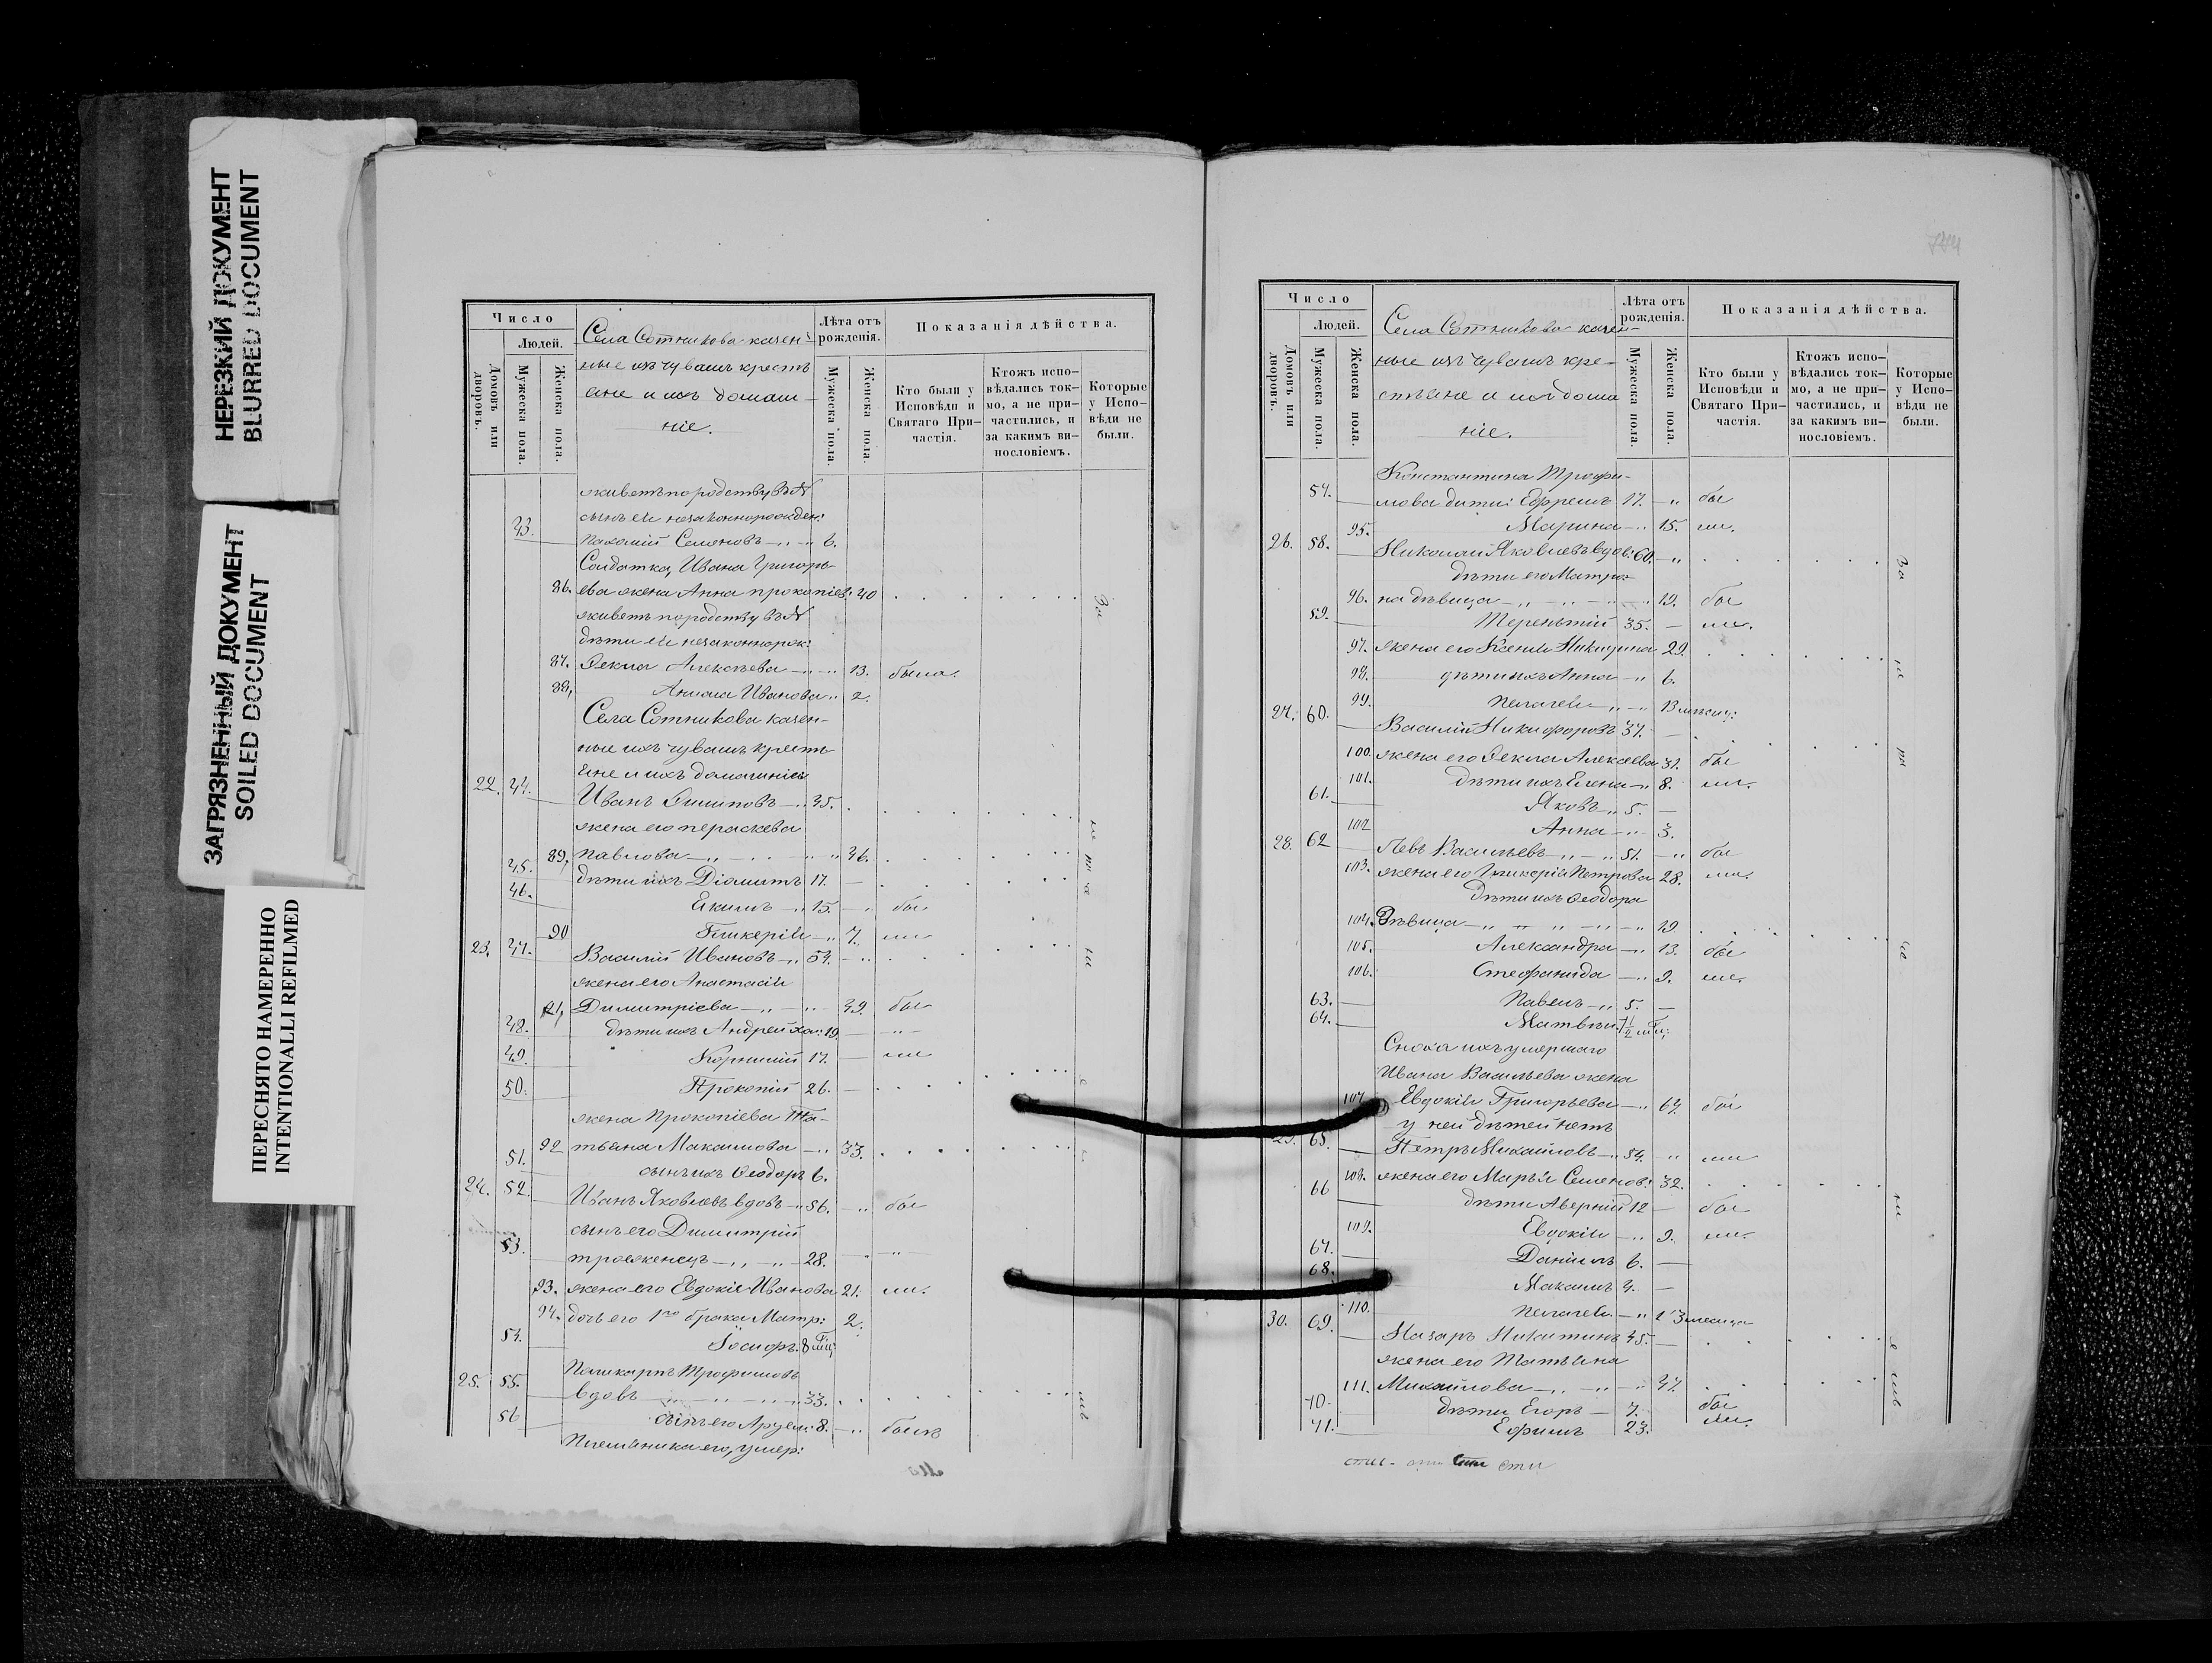 НЕРЕЗКИЙ ДОКУМЕНТ
BLURRED DOCUMENT
ЗАГРЯЗНЕННЫЙ ДОКУМЕНТ
SOILED DOCUMENT
ПЕРЕСНЯТО НАМЕРЕННО
INTENTIONALLI REFILMED
Число
Людей.
Домовъ или дворовъ.
Мужеска пола.
Женска пола.
Села Сотникова казен-
ные изъ чувашъ кресть
яне и ихъ домаш-
ніе.
Лѣта отъ рожденія.
Мужеска пола.
Женска пола.
Показанія дѣйства.
Кто были у Исповѣди и Святаго При-частія.
Ктожъ испо-вѣдались ток-мо, а не при-частились, и за какимъ ви-нословіемъ.
Которые у Испо-вѣди не были.
живетъ по родству въ N
43. сынъ ея незаконнорожден:
Пахомій Семеновъ 6.
Солдатка, Ивана Григорь-
86. ева жена Анна Прокопіев: 40
живетъ по родству въ N
дѣти ея незаконнорож:
87. Ѳекла Алексѣева 13. была.
88. Иванова 2.
Села Сотникова казен-
ные изъ чувашъ кресть
яне и ихъ домашніе
22. 44. Иванъ Филиповъ 45.
жена его Параскева
89. Павлова 46.
45. дѣти ихъ 17.
46. Екимъ 15. бы
90 Гликерія 7. ли
23. 47. Василій Ивановъ 54.
жена его Анастасія
91. Димитріева 49. бы
48. дѣти ихъ Андрей хол: 19
49. Корнилій 17. ли
50. Прокопій 26.
жена Прокопіева Та-
92 тьяна Максимова 33.
51. сынъ ихъ Ѳеодоръ 6.
24. 52. Иванъ Яковлевъ вдовъ 56. бы
сынъ его Димитрій
53. троеженецъ 28.
93. жена его Евдокія Иванова 21. ли.
94. дочь его 1го брака Матр: 2.
54. Іосифъ 8 мц:
Поликарпъ Трофимовъ
25. 55. вдовъ 33.
56 сынъ его 8. былъ
Племянника его, умер:
Число
Людей.
Домовъ или дворовъ.
Мужеска пола.
Женска пола.
Села Сотникова казен-
ные изъ чувашъ кре-
стьяне и ихъ дома
ніе.
Лѣта отъ рожденія.
Мужеска пола.
Женска пола.
Показанія дѣйства.
Кто были у Исповѣди и Святаго При-частія.
Ктожъ испо-вѣдались ток-мо, а не при-частились, и за какимъ ви-нословіемъ.
Которые у Испо-вѣди не были.
Константина Трофи-
57. мова дити: Ефремъ 17. бы
95. Марина 15. ли.
26. 58. Николай Яковлевъ вдов: 60.
дѣти его Матро-
96. на дѣвица 19. бы
59. Терентій 35. ли.
97. жена его Ксенія Никитина 29.
98. дѣти ихъ Анна 6.
99. Пелагея
27. 60. Василій Никифоровъ 37.
100. жена его Ѳекла Алексѣева 31. бы
101. дѣти ихъ Елена 8. ли.
61. Яковъ 5.
102 Анна 3.
28. 62 Левъ Васильевъ 51. бы
103. жена его Гликерія Петрова 28. ли.
дѣти ихъ Ѳеодора
104. Дѣвица 19
105. Александра 13. бы
106. Стефанида 9. ли.
63. Павелъ 5.
64. Матвѣй
Сноха ихъ умершаго
Ивана Васильева жена
107. Евдокія Григорьева 67. бы
у ней дѣтей нетъ
29. 65. Петръ Михайловъ 54. ли
108. жена его Марья Семенов: 32.
66 дѣти Аверкій 12 бы
109. Евдокія 9. ли.
67. Даніилъ 6.
68. Максимъ 4.
110. Пелагея 3 месяца
30. 69. Назаръ Никитинъ 45.
жена его Татьяна
111. Михайлова 47.
70. дѣти Егоръ 7. бы
71. Ефимъ 23. ли.